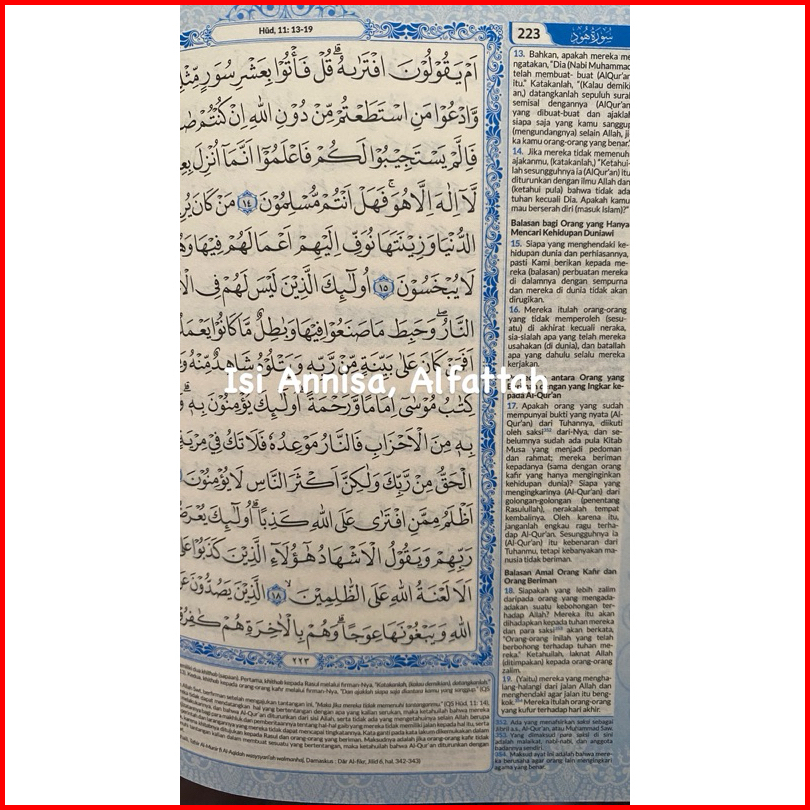 Hūd, 11: 13-19
اَمْ يَقُوْلُوْنَ افْتَرٰىهُ ۗقُلْ فَأْتُوْا بِعَشْرِ سُوَرٍ مِّثْلِ
وَّادْعُوْا مَنِ اسْتَطَعْتُمْ مِّنْ دُوْنِ اللّٰهِ اِنْ كُنْتُمْ
فَاِلَّمْ يَسْتَجِيْبُوْا لَكُمْ فَاعْلَمُوْٓا اَنَّمَآ اُنْزِلَ
لَّآ اِلٰهَ اِلَّا هُوَ ۚفَهَلْ اَنْتُمْ مُّسْلِمُوْنَ ١٤ مَنْ كَانَ
الدُّنْيَا وَزِيْنَتَهَا نُوَفِّ اِلَيْهِمْ اَعْمَالَهُمْ فِيْهَا
لَا يُبْخَسُوْنَ ١٥ اُولٰۤىِٕكَ الَّذِيْنَ لَيْسَ لَهُمْ فِى
النَّارُ ۖوَحَبِطَ مَا صَنَعُوْا فِيْهَا وَبٰطِلٌ مَّا كَانُوْا
اَفَمَنْ كَانَ عَلٰى بَيِّنَةٍ مِّنْ رَّبِّهٖ وَيَتْلُوْهُ شَاهِدٌ مِّنْهُ
كِتٰبُ مُوْسٰٓى اِمَامًا وَّرَحْمَةً ۗاُولٰۤىِٕكَ يُؤْمِنُوْنَ بِهٖ ۗ
بِهٖ مِنَ الْاَحْزَابِ فَالنَّارُ مَوْعِدُهٗ فَلَا تَكُ فِيْ مِرْيَةٍ
الْحَقُّ مِنْ رَّبِّكَ وَلٰكِنَّ اَكْثَرَ النَّاسِ لَا يُؤْمِنُوْنَ
اَظْلَمُ مِمَّنِ افْتَرٰى عَلَى اللّٰهِ كَذِبًا ۗاُولٰۤىِٕكَ
رَبِّهِمْ وَيَقُوْلُ الْاَشْهَادُ هٰٓؤُلَاۤءِ الَّذِيْنَ كَذَبُوْا
اَلَا لَعْنَةُ اللّٰهِ عَلَى الظّٰلِمِيْنَ ۙ ١٨ الَّذِيْنَ يَصُدُّوْنَ
اللّٰهِ وَيَبْغُوْنَهَا عِوَجًاۗ وَهُمْ بِالْاٰخِرَةِ هُمْ
٢٢٣
Isi Annisa, Alfattah
223 سُوْرَةُ هُوْد
13. Bahkan, apakah mereka me
ngatakan, "Dia (Nabi Muhammad
telah membuat- buat (AlQur'an
itu." Katakanlah, "(Kalau demiki
an,) datangkanlah sepuluh surah
semisal dengannya (AlQur'an
yang dibuat-buat dan ajaklah
siapa saja yang kamu sanggup
(mengundangnya) selain Allah, ji
ka kamu orang-orang yang benar."
14. Jika mereka tidak memenuhi
ajakanmu, (katakanlah,) "Ketahui-
lah sesungguhnya ia (AlQur'an) itu
diturunkan dengan ilmu Allah dan
(ketahui pula) bahwa tidak ada
tuhan kecuali Dia. Apakah kamu
mau berserah diri (masuk Islam)?"
Balasan bagi Orang yang Hanya
Mencari Kehidupan Duniawi
15. Siapa yang menghendaki ke-
hidupan dunia dan perhiasannya,
pasti Kami berikan kepada me-
reka (balasan) perbuatan mereka
di dalamnya dengan sempurna
dan mereka di dunia tidak akan
dirugikan.
16. Mereka itulah orang-orang
yang tidak memperoleh (sesu-
atu) di akhirat kecuali neraka,
sia-sialah apa yang telah mereka
usahakan (di dunia), dan batallah
apa yang dahulu selalu mereka
kerjakan.
antara Orang yang
dengan yang Ingkar ke-
pada Al-Qur'an
17. Apakah orang yang sudah
mempunyai bukti yang nyata (Al-
Qur'an) dari Tuhannya, diikuti
oleh saksi dari-Nya, dan se-
belumnya sudah ada pula Kitab
Musa yang menjadi pedoman
dan rahmat; mereka beriman
kepadanya (sama dengan orang
kafir yang hanya menginginkan
kehidupan dunia)? Siapa yang
mengingkarinya (Al-Qur'an) dari
golongan-golongan (penentang
Rasulullah), nerakalah tempat
kembalinya. Oleh karena itu,
janganlah engkau ragu terha-
dap Al-Qur'an. Sesungguhnya ia
(Al-Qur'an) itu kebenaran dari
Tuhanmu, tetapi kebanyakan ma-
nusia tidak beriman.
Balasan Amal Orang Kafir dan
Orang Beriman
18. Siapakah yang lebih zalim
daripada orang yang mengada-
adakan suatu kebohongan ter-
hadap Allah? Mereka itu akan
dihadapkan kepada tuhan mereka
dan para saksi akan berkata,
"Orang-orang inilah yang telah
berbohong terhadap tuhan me-
reka." Ketahuilah, laknat Allah
(ditimpakan) kepada orang-orang
zalim.
19. (Yaitu) mereka yang mengha-
lang-halangi dari jalan Allah dan
menghendaki agar jalan itu beng-
kok. Mereka itulah orang-orang
yang kufur terhadap hari akhir.
352. Ada yang menafsirkan saksi sebagai
Jibril a.s., Al-Qur'an, atau Muhammad Saw.
353. Yang dimaksud para saksi di sini
adalah malaikat, nabi-nabi, dan anggota
badannya sendiri.
354. Maksud ayat ini adalah bahwa mere-
ka berusaha agar orang lain mengingkari
agama yang benar.